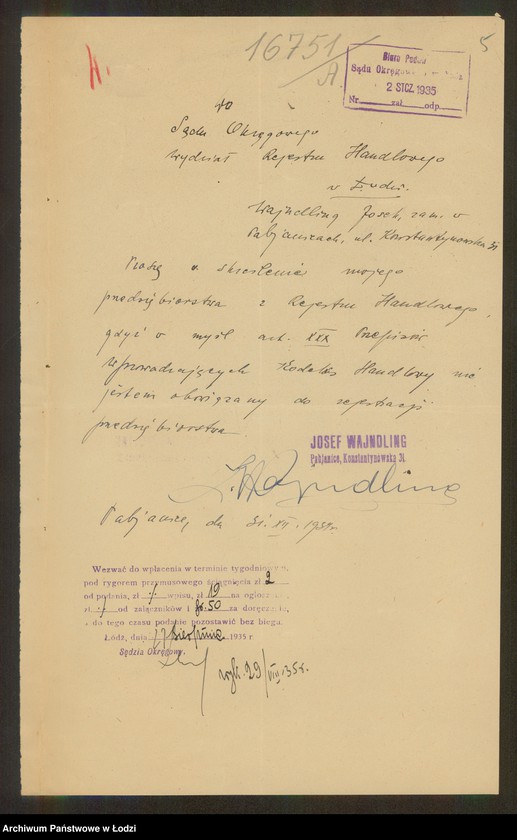 16751/A
5
Biuro Podaw
Sądu Okręgowego
2 STCZ. 1935
Nr. zał. odp.
Do
Sądu Okręgowego
Wydział Rejestru Handlowego
w Łodzi.
Wajndling Josek, zam. w
Pabjanicach, ul. Konstantynowska 31
Proszę o skreślenie mojego
przedsiębiorstwa z Rejestru Handlowego,
gdyż w myśl art. XXX Przepisów
wprowadzających Kodeks Handlowy nie
jestem obowiązany do rejestracji
przedsiębiorstwa
JOSEF WAJNDLING
Pabjanice, Konstantynowska 31.
J. Wajndling
Pabjanice, dn 31.XII.1934r.
Wezwać do wpłacenia w terminie tygodniowym,
pod rygorem przymusowego ściągnięcia zł 2
od podania, zł :/ wpisu, zł 19 na ogłosz
zł :/ od załączników i gr. 50 za doręcz
a do tego czasu podanie pozostawić bez biegu.
Łódź, dnia 17 sierpnia 1935 r.
Sędzia Okręgowy.
wyk. 29/VIII 35 r.
Archiwum Państwowe w Łodzi